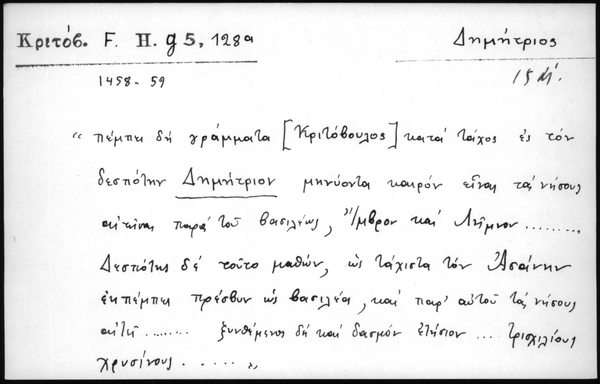 Κριτόβ. F. H. g 5, 128a
Δημήτριος
1458-59
15 αἰ.
“ πέμπει δή γράμματα [Κριτόβουλος] κατά τάχος ἐς τόν
δεσπότην Δημήτριον μηνύοντα καιρόν εἶναι τάς νήσους
αἰτεῖσθαι παρά τοῦ βασιλέως, Ἴμβρον καί Λῆμνον .........
Δεσπότης δέ τοῦτο μαθών, ὡς τάχιστα τόν Ἀσάνην
ἐκπέμπει πρέσβυν ὡς βασιλέα, καί παρ' αὐτοῦ τάς νήσους
αἰτεῖ ......... ξυνθέμενος δή καί δασμόν ἐτήσιον ... τρισχιλίους
χρυσίνους ..... „